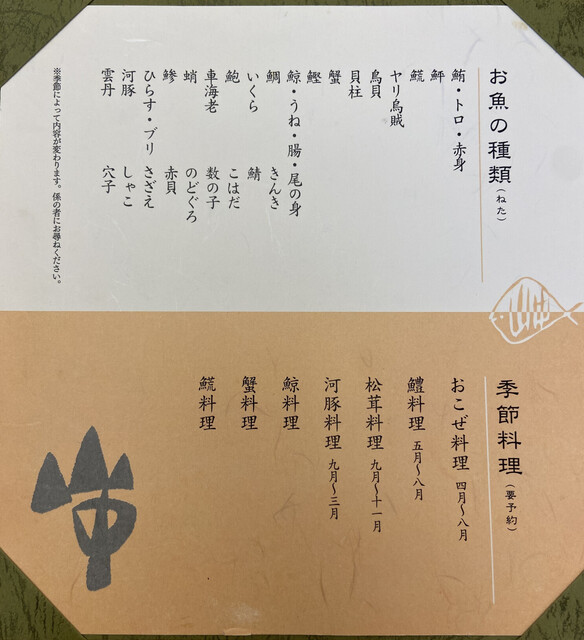 お魚の種類(ねた)
鮪・トロ・赤身
鮃
鱿
ヤリ烏賊
鳥貝
貝柱
蟹
鰹
鯨・うね・腸・尾の身
鯛 きんき
いくら 鯖
鮑 こはだ
車海老 数の子
蛸 のどぐろ
鯵 赤貝
ひらす・ブリ さざえ
河豚 しゃこ
雲丹 穴子
※季節によって内容が変わります。係の者にお尋ねください。
季節料理(要予約)
おこぜ料理 四月〜八月
鱧料理 五月〜八月
松茸料理 九月〜十一月
河豚料理 九月〜三月
鯨料理
蟹料理